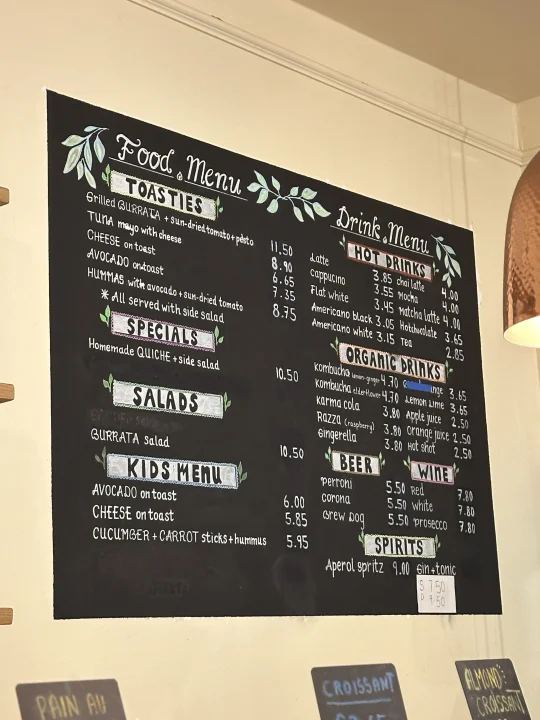 Food Menu
TOASTIES
Grilled BURRATA + sun-dried tomato + pesto 11.50
TUNA mayo with cheese 8.90
CHEESE on toast 6.65
AVOCADO on toast 7.35
HUMMAS with avocado + sun-dried tomato 8.75
* All served with side salad
SPECIALS
Homemade QUICHE + side salad 10.50
SALADS
BURRATA salad 10.50
KIDS MENU
AVOCADO on toast 6.00
CHEESE on toast 5.85
CUCUMBER + CARROT sticks + hummus 5.95
Drink Menu
HOT DRINKS
Latte 3.85 chai latte 4.00
Cappucino 3.55 Mocha 4.00
Flat white 3.45 matcha latte 4.00
Americano black 3.05 Hotchocolate 3.65
Americano white 3.15 Tea 2.85
ORGANIC DRINKS
kombucha lemon-ginger 4.70 3.65
kombucha elderflower 4.70 Lemon Lime 3.65
karma cola 3.80 Apple juice 2.50
Razza (raspberry) 3.80 Orange juice 2.50
Gingerella 3.80 Hot shot 2.50
BEER
Perroni 5.50
Corona 5.50
Brew Dog 5.50
WINE
Red 7.80
white 7.80
prosecco 7.80
SPIRITS
Aperol spritz 9.00 Gin + tonic
S 7.50
D 9.50
PAIN AU
CROISSANT
ALMOND
CROISSANT